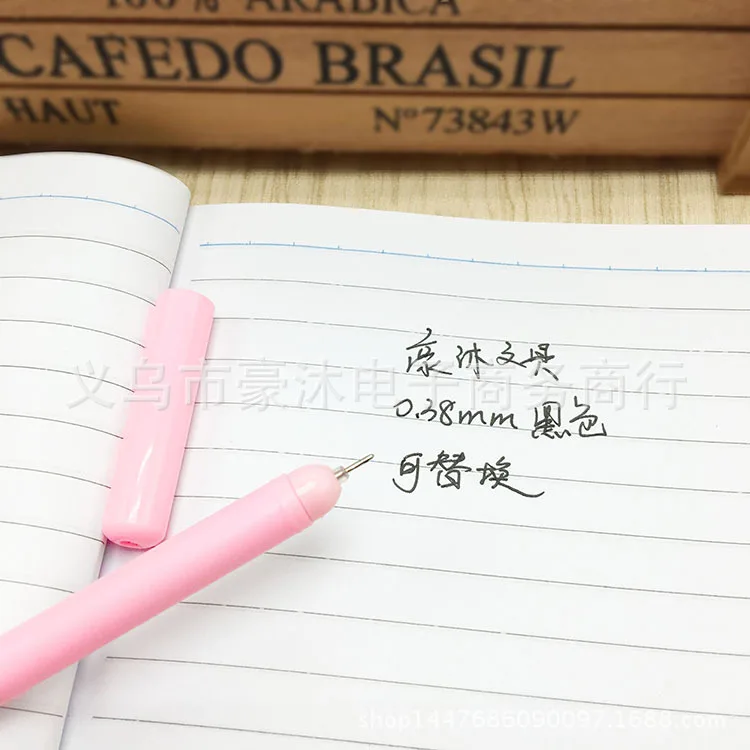 100% ARABICA
CAFEDO BRASIL
HAUT N°73843W
豪沐文具
义乌市豪沐电子商务商行
0.38mm 黑色
可替换
shop1447685090097.1688.com